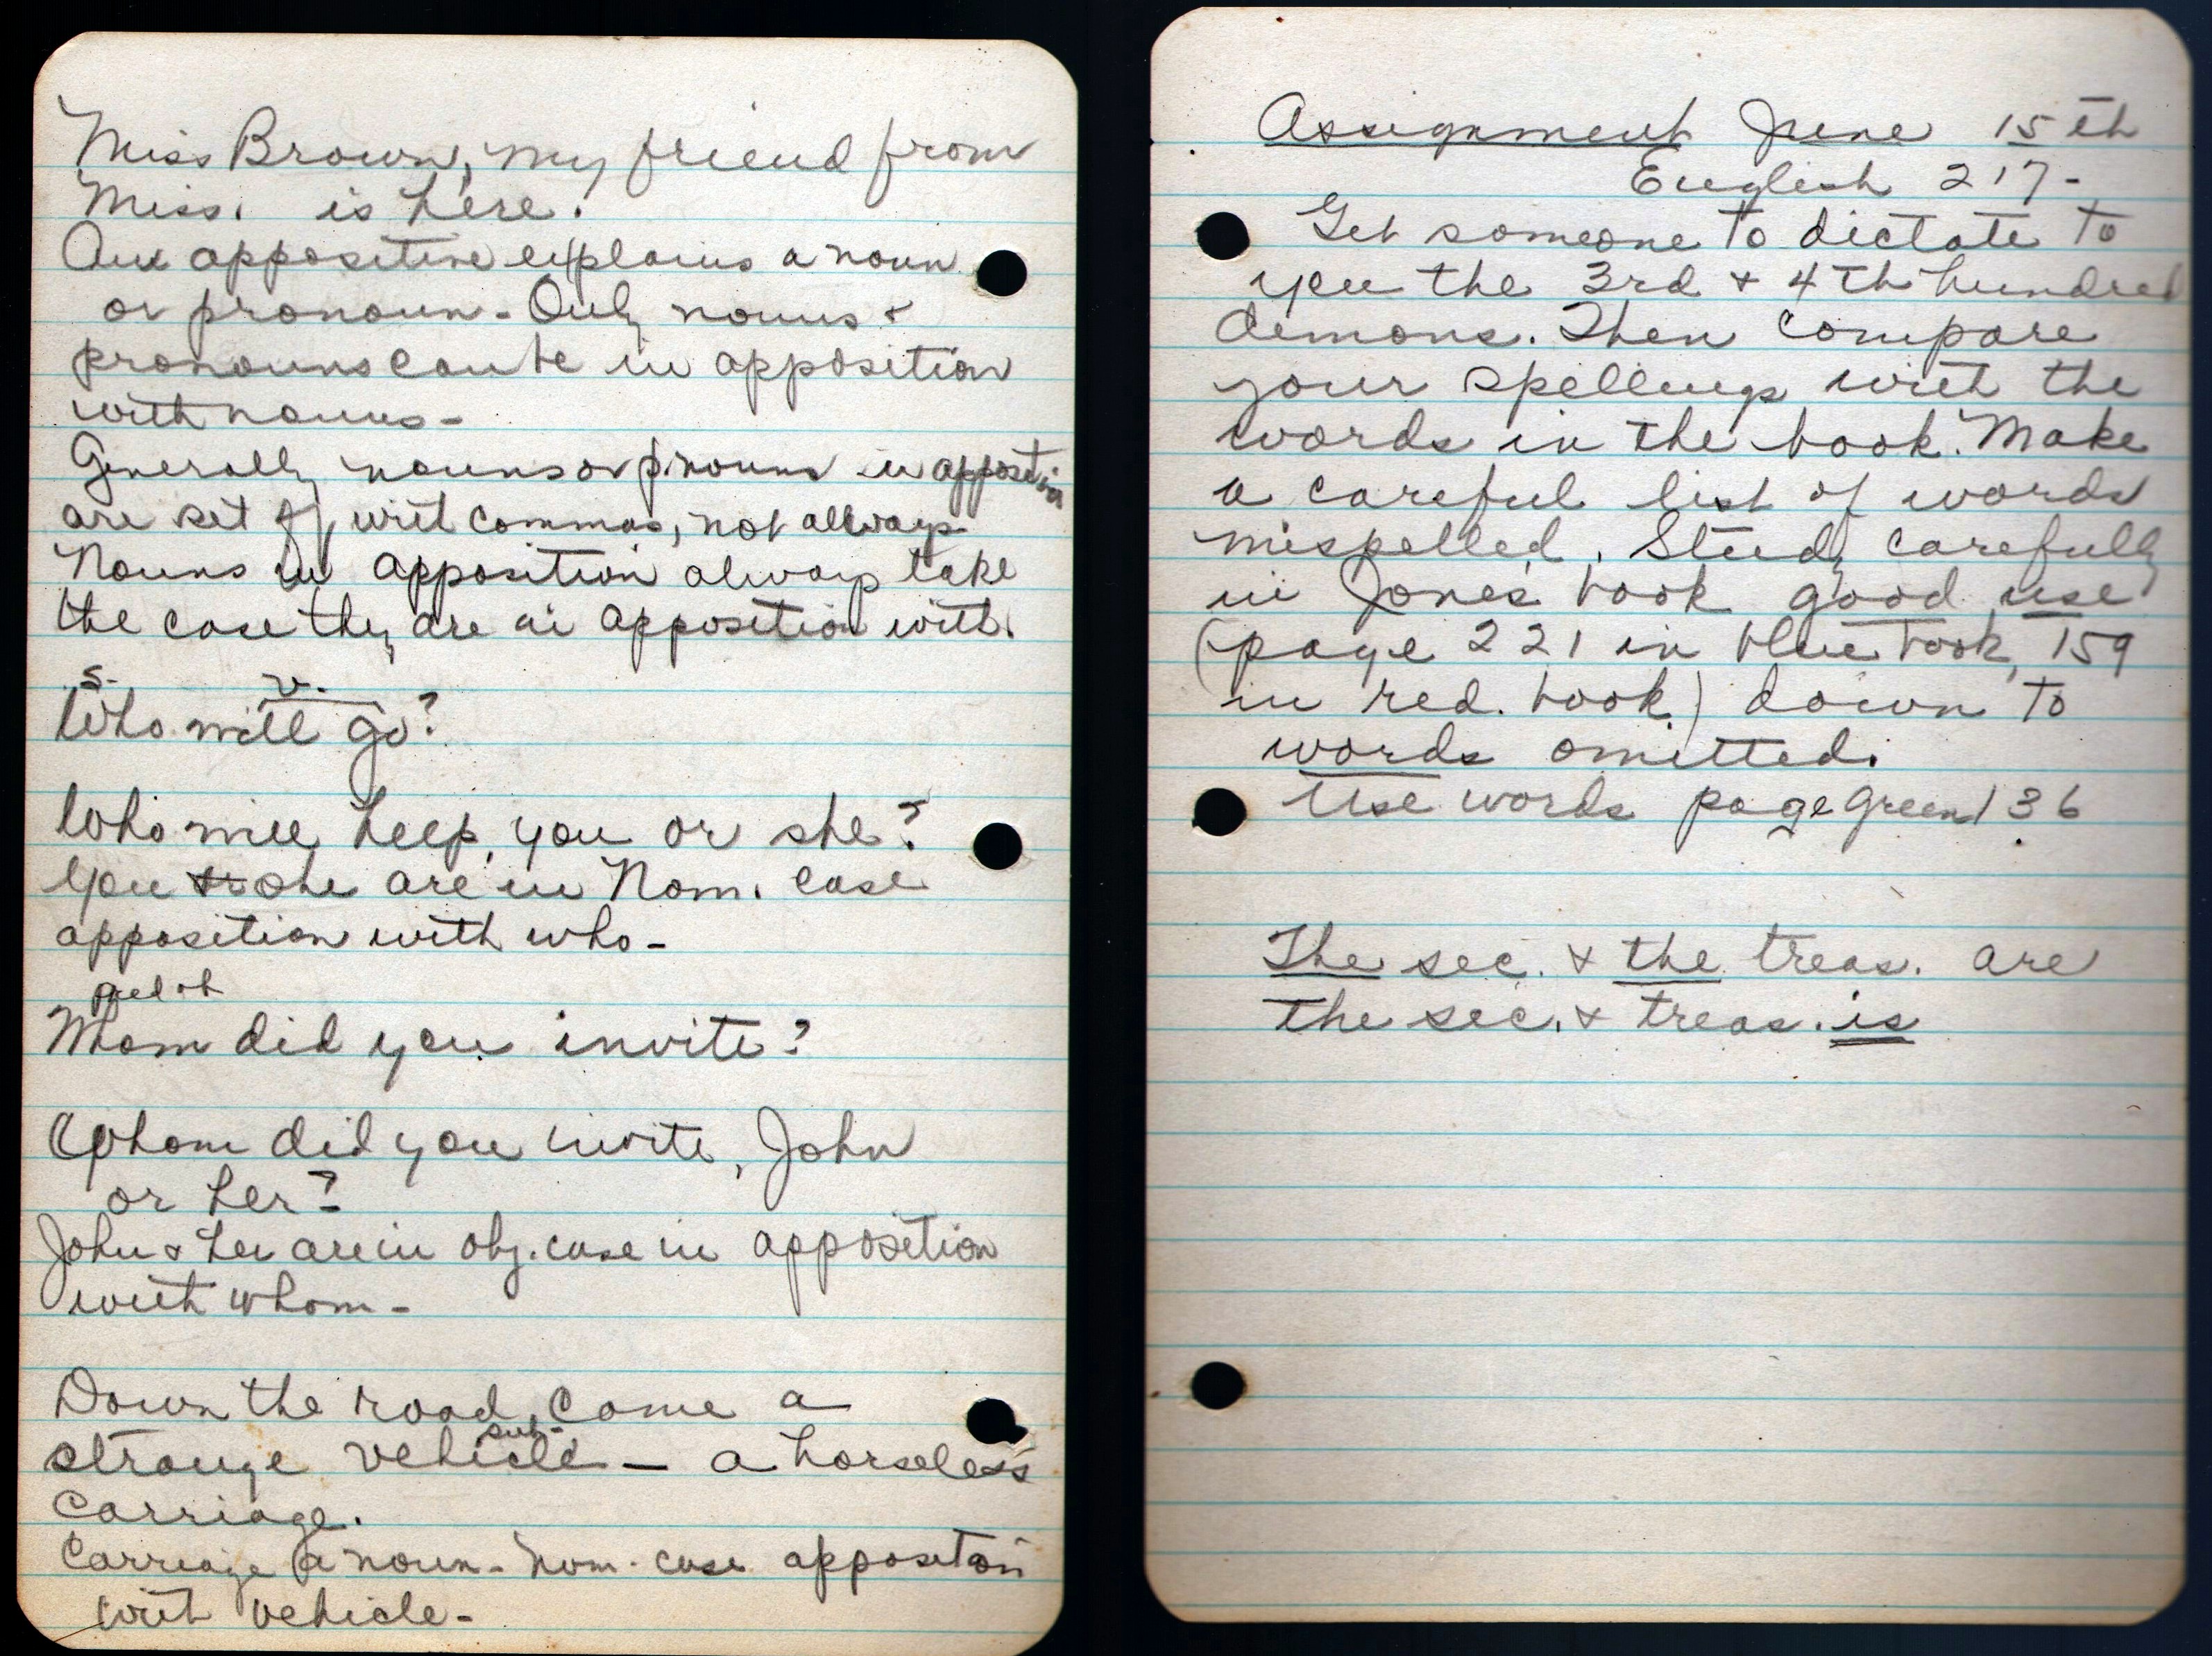 Miss Brown, my friend from
Miss. is here.
An appositive explains a noun
or pronoun - Only nouns &
pronouns can be in apposition
with nouns -
Generally nouns or pronouns in apposition
are set off with commas, not allways
Nouns in apposition always take
the case they are in apposition with.
s. v.
Who will go?
Who will help, you or she?
You or she are in Nom. case
apposition with who -
Whom did you invite?
Whom did you invite, John
or her?
John & her are in obj. case in apposition
with whom -
Down the road, come a
sub.
strange vehicle — a horseless
carriage.
Carriage a noun - nom. case apposition
with vehicle -
Assignment June 15th
English 217 -
Get someone to dictate to
you the 3rd & 4th hundred
demons. Then compare
your spellings with the
words in the book. Make
a careful list of words
mispelled. Study carefully
in Jones book good use
(page 221 in blue book, 159
in red. book) down to
words omitted.
Use words page green 136
The sec. & the treas. are
the sec. & treas. is